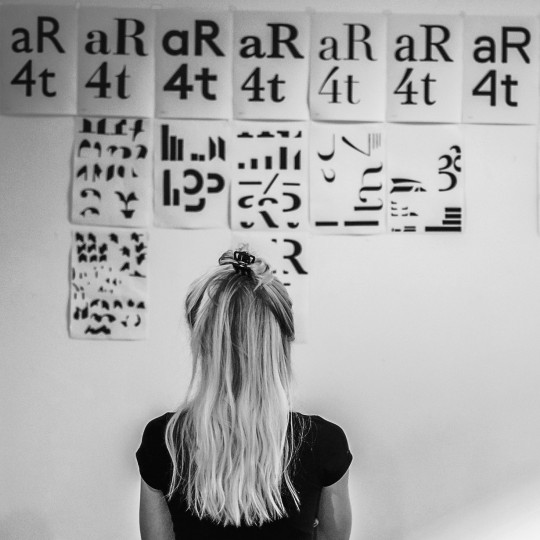 aR aR aR aR aR aR aR
4t 4t 4t 4t 4t 4t 4t
R